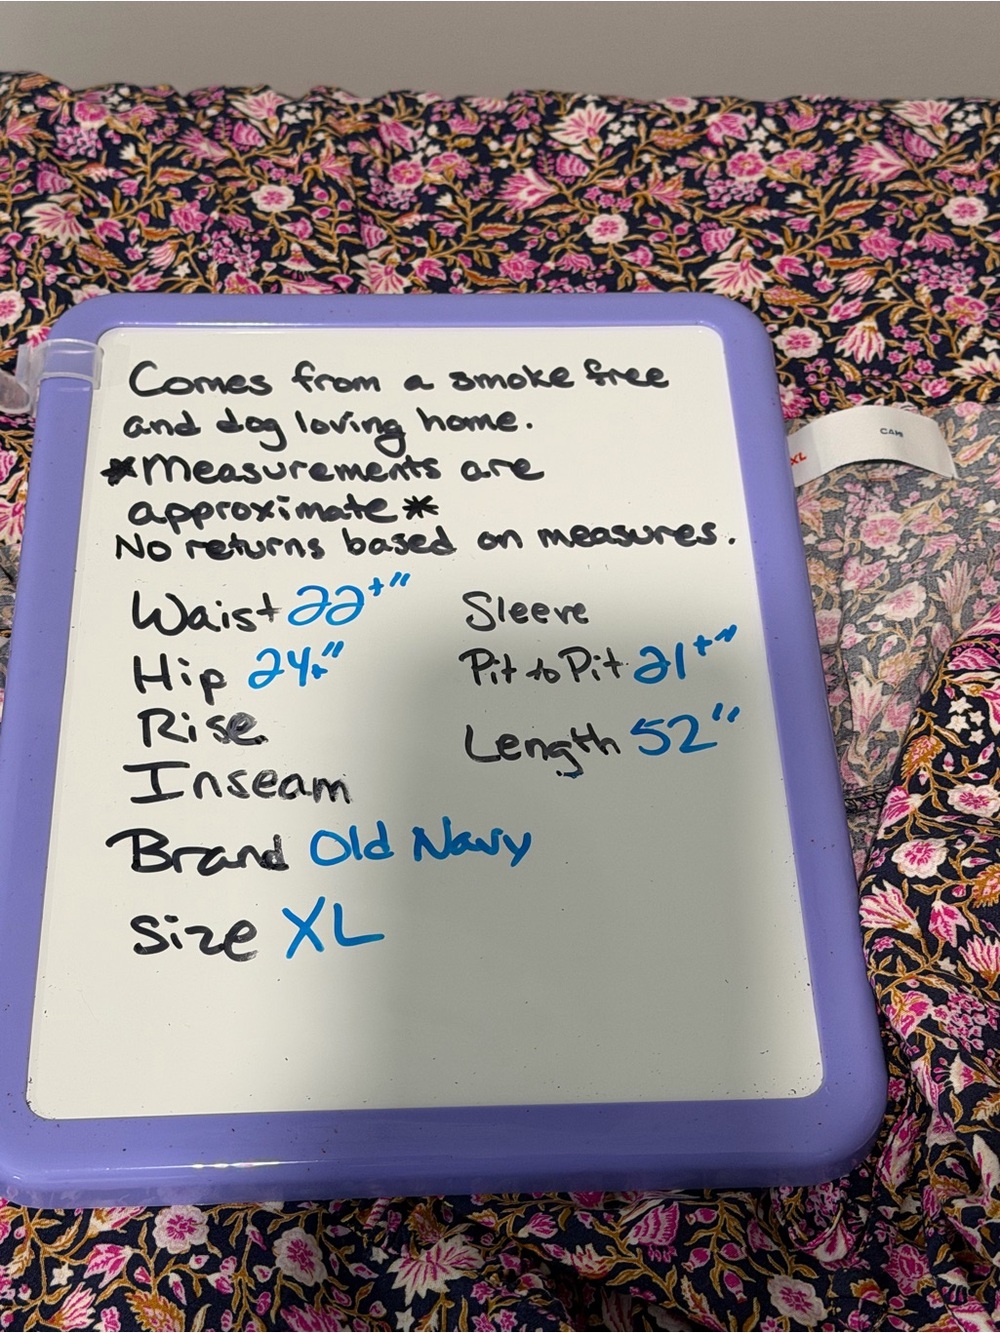 Comes from a smoke free
and dog loving home.
*Measurements are
approximate*
No returns based on measures.
Waist 22+"
Hip 24+"
Rise
Inseam
Brand Old Navy
Size XL
Sleeve
Pit to Pit 21+"
Length 52"
XL
CAN